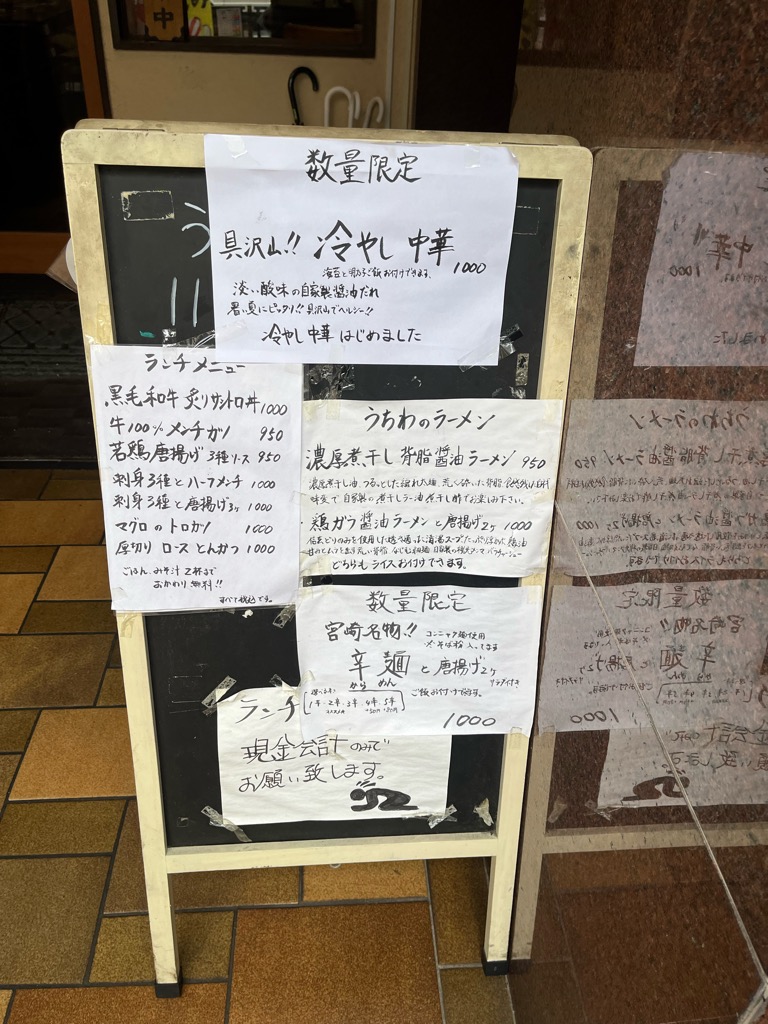 数量限定
具沢山!! 冷やし中華
海苔と明太子ご飯お付けできます。 1000
淡い酸味の自家製醤油だれ
暑い夏にピッタリ!! 具沢山でヘルシー!!
冷やし中華はじめました
ランチメニュー
黒毛和牛 炙りサントロ丼 1000
牛100%メンチカツ 950
若鶏唐揚げ 3種ソース 950
刺身3種とハーフメンチ 1000
刺身3種と唐揚げ3ヶ 1000
マグロのトロカツ 1000
厚切りロースとんかつ 1000
ごはん、みそ汁 2杯まで
おかわり無料!!
すべて税込です。
うちわのラーメン
濃厚煮干し背脂醤油ラーメン 950
味変で自家製の煮干しラー油煮干し酢でお楽しみ下さい。
鶏ガラ醤油ラーメンと唐揚げ2ヶ 1000
どちらもライスお付けできます。
数量限定
宮崎名物!! コンニャク麺使用
辛麺と唐揚げ2ヶ
から めん
サラダ付き
選べる辛さ
1辛・2辛・3辛・4辛・5辛
ご飯お付け出来ます。
1000
ランチ
現金会計のみで
お願い致します。
中